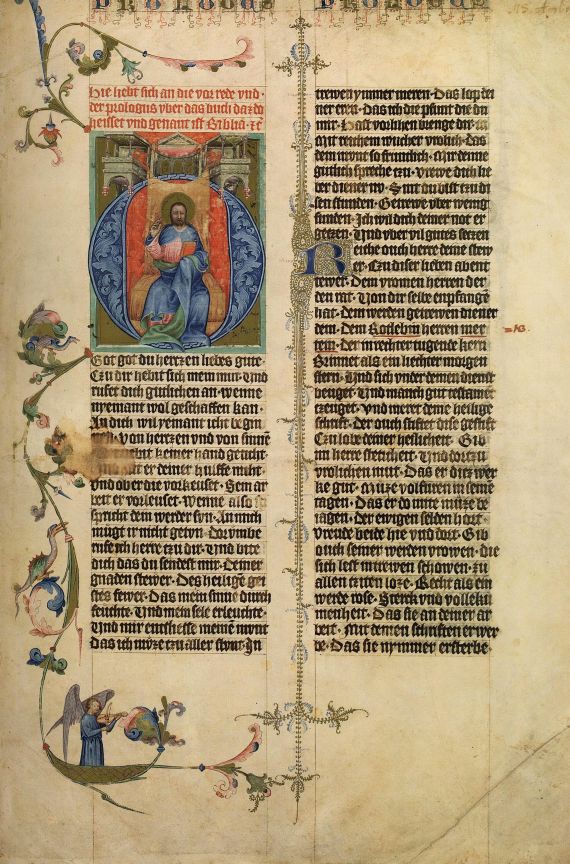 Prologus Prologus
Hie hebt sich an die vor rede vnd ·
der prologus vber das buch daz do
heisset vnd genant ist Biblia · etc
O got got du hertzen liebes gute ·
Czu dir hebit sich mein mut · Vnd
rufet dich gutlichen an · wenne
nyemant wol geschaffen kan ·
An dich wil yemant icht begin
Von hertzen vnd von sinnē
keiner hand geticht ·
er deiner hulffe nicht ·
vnd ob er die vorkeuset · Sein ar
beit er vorleuset · Wenne also
spricht dem werder syn · An mich
mugt ir nicht getun · Dorvmbe
rufe ich herre czu dir · Vnd bite
dich das du sendest mir · Deiner
gnaden stewer · Des heilige gei
stes fewer · Das mein sinne durch
feuchte · Vnd mein sele erleuchte ·
Vnd mir entslisse meinē mvnt
Das ich mvze czu aller stvnt · In
trewen ymmer meren · Das lop dei
ner eren · Das ich die pfunt die du
mir · Hast vorlihen brenge dir
mit reichem wucher vrolich · Das
dein mvnt so frunlich · Mir denne
gutlich spreche czu · Vrewe dich li
ber diener nv · Sint du bist czu di
sen stunden · Getrewe vber wenig
funden · Ich wil dich deiner not er
geczen · Vnd vber vil gutes seczen
Reiche ouch herre deine stew
er · Czu diser lieben abent
tewer · Dem vromen herren der
den rat · Von dir selbe enpfangē
hat · Dem werden getrewen diener
dein · Dem Rotlebin herren mer
tein · Der in rechter tugende kern
Brinnet als ein liechter morgen
stern · Vnd sich vnder deinen dienst
beuget · Vnd manch gut testament
czeuget · Vnd meret deine heilige
schrift · Der ouch stiftet dise gestift
Czu lobe deiner heilicheit · Gib
im herre stetichеit · Vnd dorczu
vrolichen mut · Das er dicz wer
ke gut · Mvze volfuren in seinē
tagen · Das er do mite mvze be
iagen · Der ewigen selden hort ·
Vreude beide hie vnd dort · Gib
ouch seiner werden vrowen · die
sich lest in trewen schowen · Czu
allen cziten loze · Recht als ein
werde rose · Sterck vnd volleku
menheit · Das sie an deiner ar
beit · Mit deinen schriften er wer
be · Das sie nymmer ersterbe ·